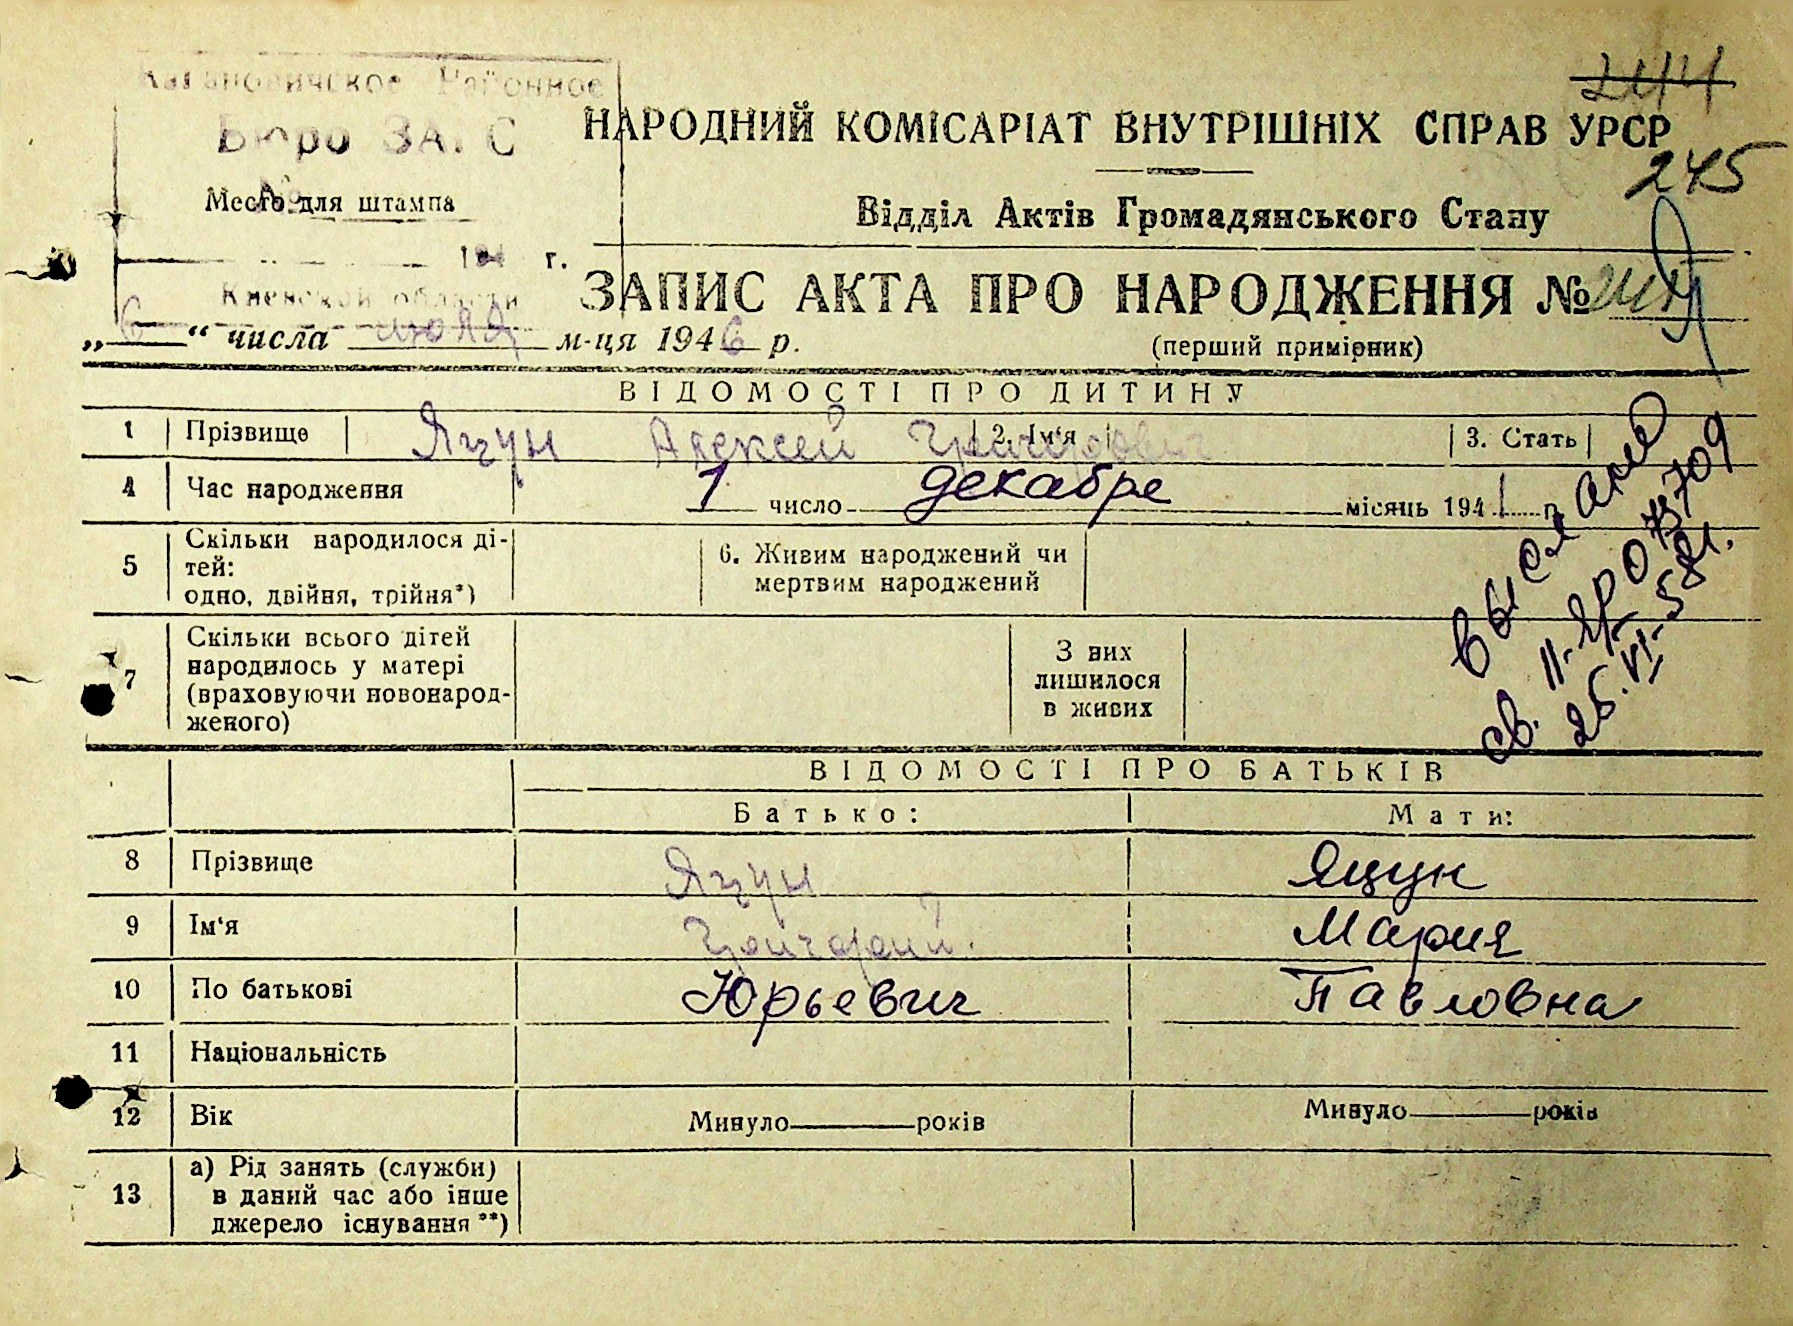 Кагановичское Районное
Бюро ЗАГС
Место для штампа
194 г.
Киевской области
244
НАРОДНИЙ КОМІСАРІАТ ВНУТРІШНІХ СПРАВ УРСР
245
Відділ Актів Громадянського Стану
ЗАПИС АКТА ПРО НАРОДЖЕННЯ №
„6“ числа июля м-ця 1946 р.
(перший примірник)
ВІДОМОСТІ ПРО ДИТИНУ
1 Прізвище Яцун Алексей Григорович 2. Ім‘я 3. Стать
4 Час народження 1 число декабре місяць 1941 р.
5 Скільки народилося ді-
тей:
одно, двійня, трійня*)
6. Живим народжений чи
мертвим народжений
7 Скільки всього дітей
народилось у матері
(враховуючи новонарод-
женого)
З них
лишилося
в живих
св. II-ЯР 073709
ВІДОМОСТІ ПРО БАТЬКІВ
Батько: Мати:
8 Прізвище Яцун Яцун
9 Ім‘я Григорий. Мария
10 По батькові Юрьевич Павловна
11 Національність
12 Вік Минуло років Минуло років
13 а) Рід занять (служби)
в даний час або інше
джерело існування**)